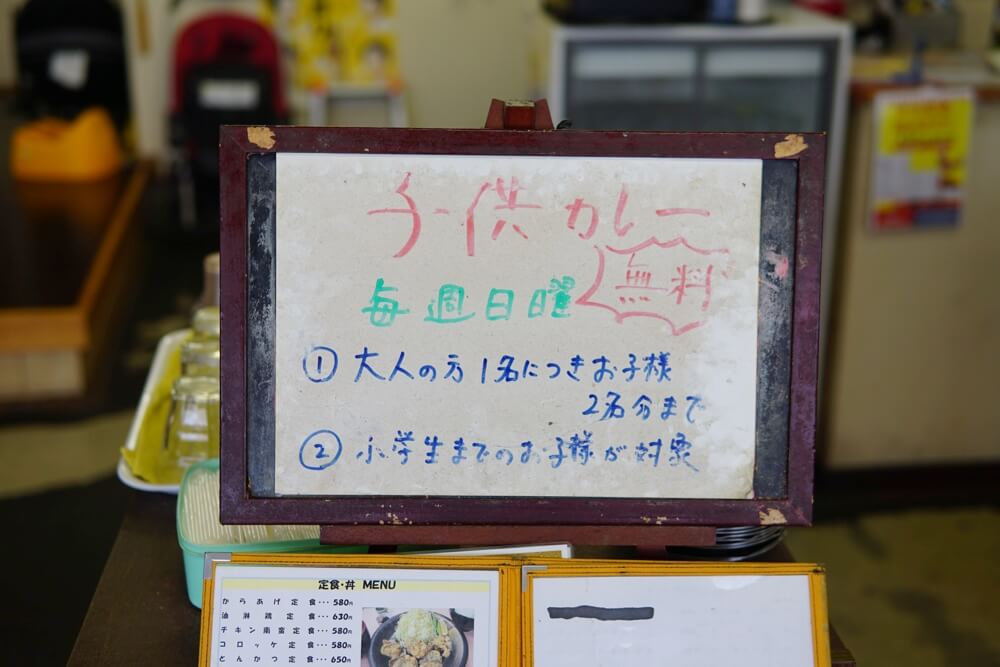 子供カレー
無料
毎週日曜
① 大人の方1名につきお子様
2名分まで
② 小学生までのお子様が対象
定食・丼 MENU
からあげ定食・・・580円
油淋鶏定食・・・630円
チキン南蛮定食・・・580円
コロッケ定食・・・580円
とんかつ定食・・・650円